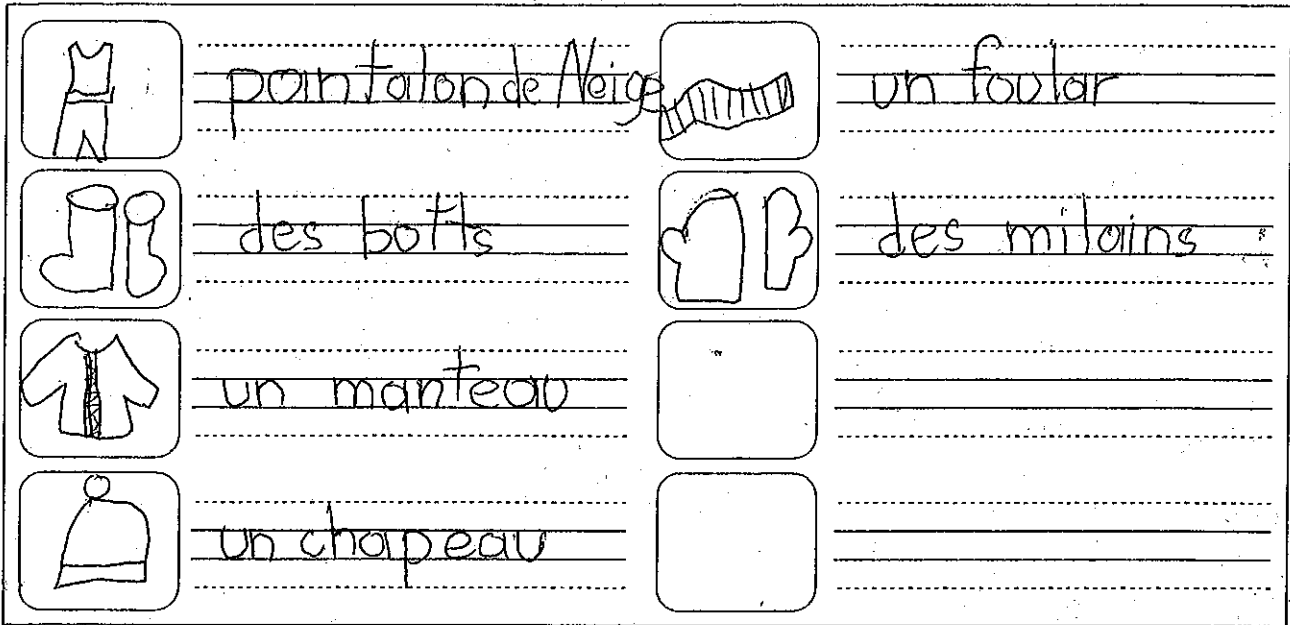 pantalon de Neige
des botts
un manteau
un chapeau
un foular
des mitains